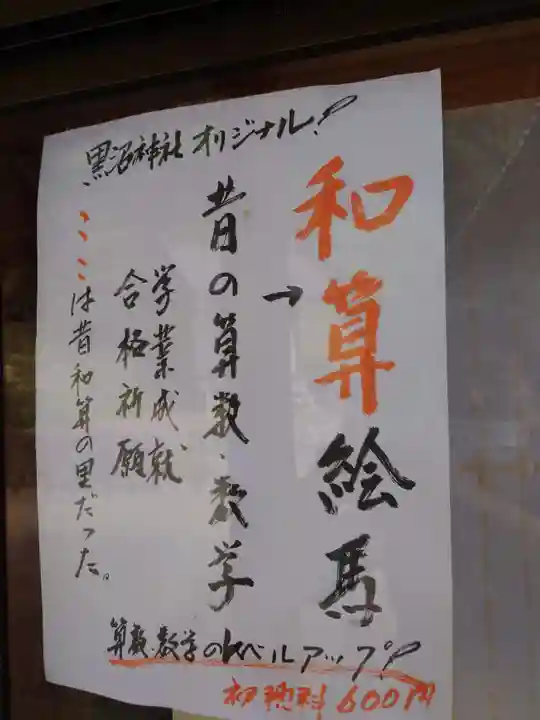 黒沼神社オリジナル!
和算絵馬
→
昔の算数・数学
学業成就
合格祈願
ここは昔和算の里だった。
算数・数学のレベルアップ!
初穂料600円